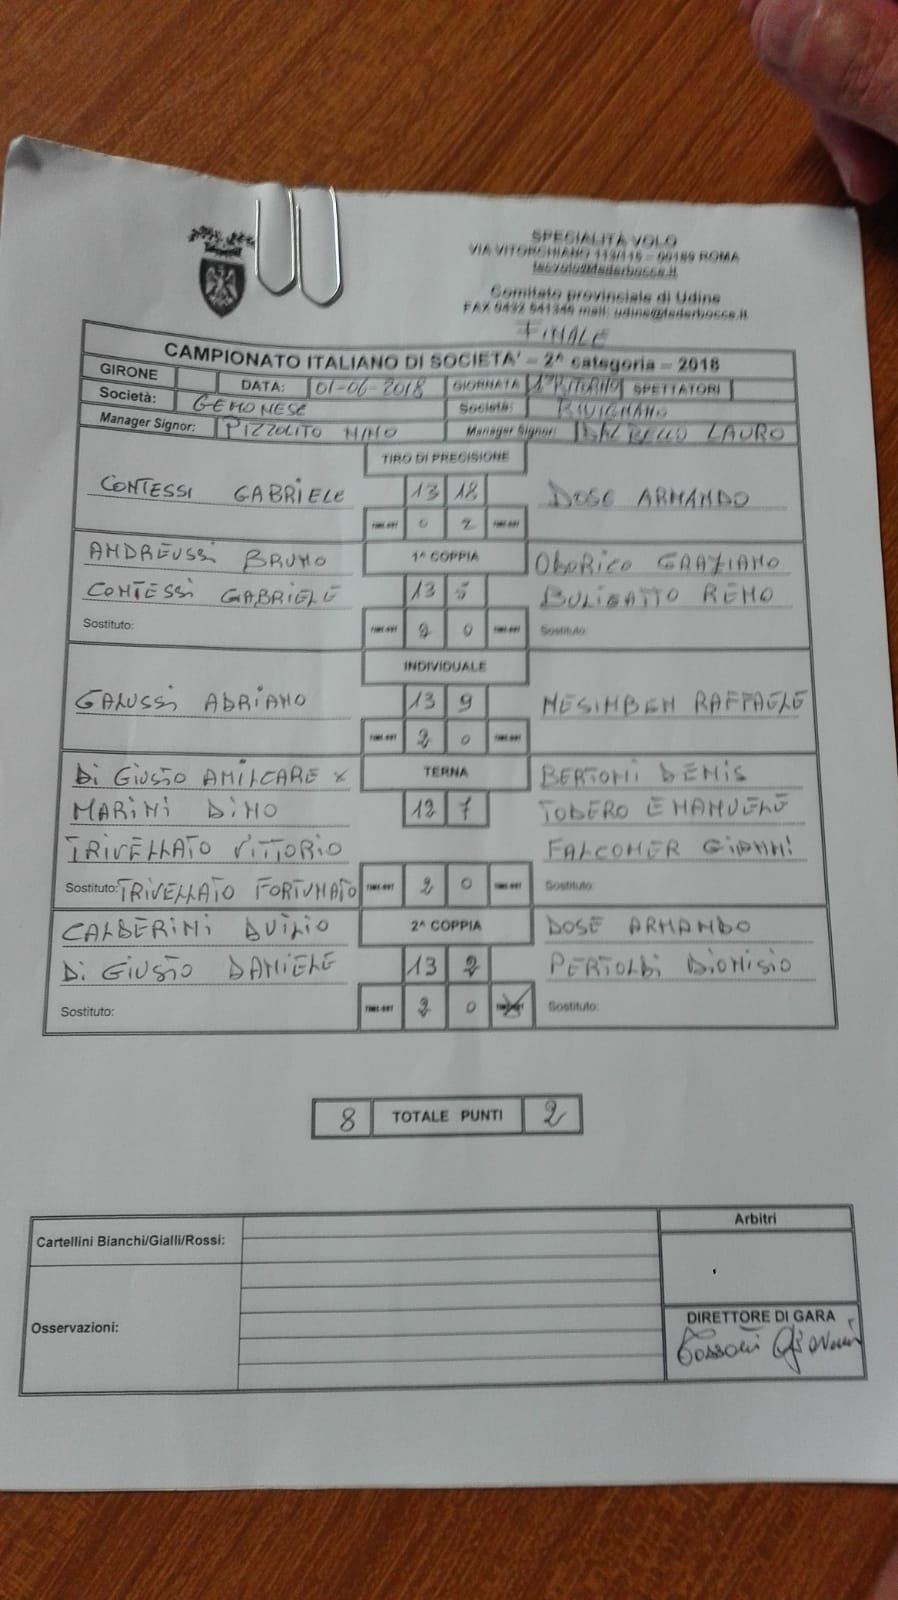 SPECIALITÀ VOLO
VIA VITORCHIANO 113/115 – 00189 ROMA
tecvolo@federbocce.it
Comitato provinciale di Udine
FAX 0432 541345 mail: udine@federbocce.it
FINALE
CAMPIONATO ITALIANO DI SOCIETA' – 2^ categoria – 2018
GIRONE DATA: 01-06-2018 GIORNATA 1° RITORNO SPETTATORI
Società: GEMONESE Società: RIVIGNANO
Manager Signor: PIZZOLITO NINO Manager Signor: DAL BELLO LAURO
TIRO DI PRECISIONE
CONTESSI GABRIELE 13 18 DOSE ARMANDO
TIME-OUT 0 2 TIME-OUT
ANDREUSSI BRUNO 1^ COPPIA ODORICO GRAZIANO
CONTESSI GABRIELE 13 5 BULIGATTO REMO
Sostituto: TIME-OUT 2 0 TIME-OUT Sostituto:
INDIVIDUALE
GALUSSI ADRIANO 13 9 MESIMBEN RAFFAELE
TIME-OUT 2 0 TIME-OUT
DI GIUSTO AMILCARE x TERNA BERTONI DENIS
MARINI DINO 12 7 TODERO EMANUELE
TRIVELLATO VITTORIO FALCOMER GIANNI
Sostituto: TRIVELLATO FORTUNATO TIME-OUT 2 0 TIME-OUT Sostituto:
CALDERINI DUILIO 2^ COPPIA DOSE ARMANDO
DI GIUSTO DANIELE 13 2 PERTOLDI DIONISIO
Sostituto: TIME-OUT 2 0 TIME-OUT Sostituto:
8 TOTALE PUNTI 2
Cartellini Bianchi/Gialli/Rossi:
Arbitri
Osservazioni:
DIRETTORE DI GARA